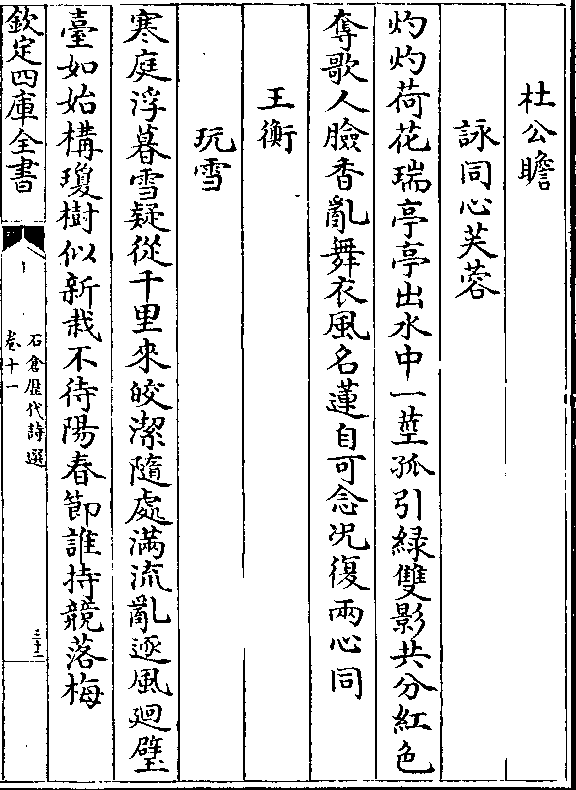 杜公瞻
詠同心芙蓉
灼灼荷花瑞亭亭出水中一莖孤引緑雙影共分紅色
奪歌人臉香亂舞衣風名蓮自可念况復兩心同
王衡
玩雪
寒庭浮暮雪疑從千里來皎潔隨處满流亂逐風迴璧
臺如始構瓊樹似新栽不待陽春節誰持競落梅
欽定四庫全書
石倉歴代詩選
卷十一
三十二